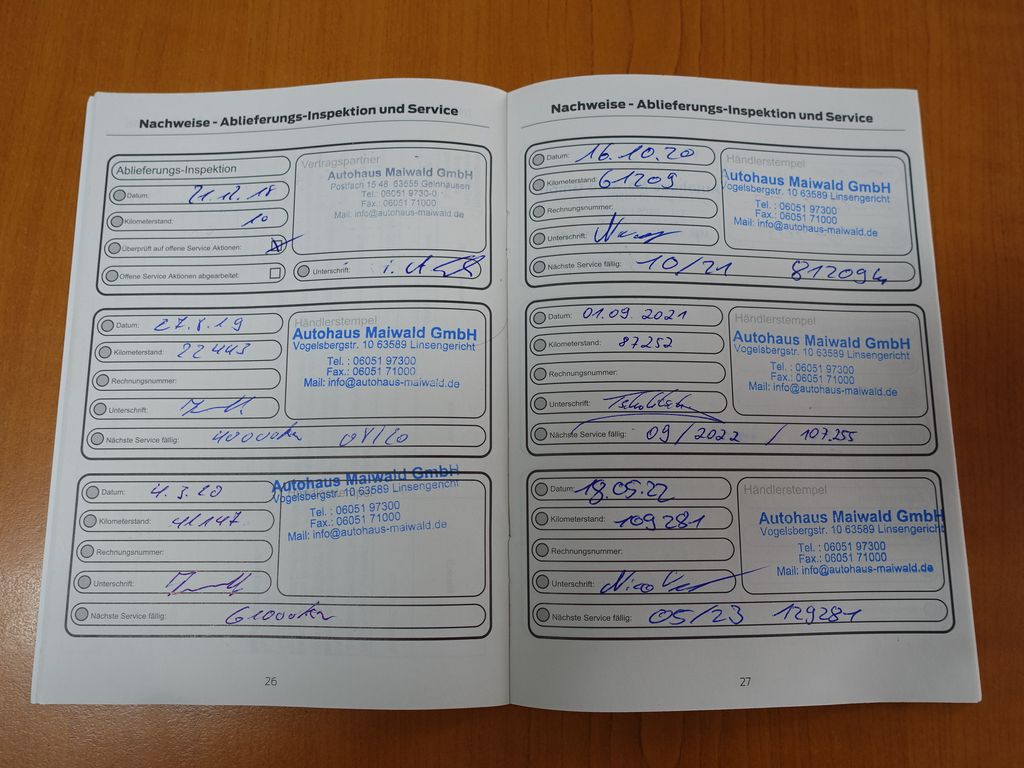 Nachweise - Ablieferungs-Inspektion und Service
Ablieferungs-Inspektion
Datum: 21.12.18
Kilometerstand: 10
Überprüft auf offene Service Aktionen:
Offene Service Aktionen abgearbeitet:
Vertragspartner
Autohaus Maiwald GmbH
Postfach 15 48 63555 Gelnhausen
Tel.: 06051 9730-0
Fax.: 06051 71000
Mail: info@autohaus-maiwald.de
Unterschrift: i. A
Datum: 27.8.19
Kilometerstand: 22443
Rechnungsnummer:
Unterschrift:
Händlerstempel
Autohaus Maiwald GmbH
Vogelsbergstr. 10 63589 Linsengericht
Tel. : 06051 97300
Fax.: 06051 71000
Mail: info@autohaus-maiwald.de
Nächste Service fällig: 40000km 08/20
Datum: 4.3.20
Kilometerstand: 41147
Rechnungsnummer:
Unterschrift:
Autohaus Maiwald GmbH
Vogelsbergstr. 10 63589 Linsengericht
Tel. : 06051 97300
Fax.: 06051 71000
Mail: info@autohaus-maiwald.de
Nächste Service fällig: 61000km
26
Nachweise - Ablieferungs-Inspektion und Service
Datum: 16.10.20
Kilometerstand: 61209
Rechnungsnummer:
Unterschrift:
Händlerstempel
Autohaus Maiwald GmbH
Vogelsbergstr. 10 63589 Linsengericht
Tel. : 06051 97300
Fax.: 06051 71000
Mail: info@autohaus-maiwald.de
Nächste Service fällig: 10/21 81209km
Datum: 01.09.2021
Kilometerstand: 87252
Rechnungsnummer:
Unterschrift:
Händlerstempel
Autohaus Maiwald GmbH
Vogelsbergstr. 10 63589 Linsengericht
Tel. : 06051 97300
Fax.: 06051 71000
Mail: info@autohaus-maiwald.de
Nächste Service fällig: 09/2022 / 107.255
Datum: 18.05.22
Kilometerstand: 109281
Rechnungsnummer:
Unterschrift: Nico
Händlerstempel
Autohaus Maiwald GmbH
Vogelsbergstr. 10 63589 Linsengericht
Tel. : 06051 97300
Fax.: 06051 71000
Mail: info@autohaus-maiwald.de
Nächste Service fällig: 05/23 129281
27